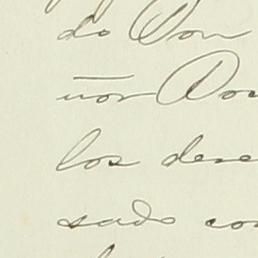 do Don
ñor Don
los dese
sado con